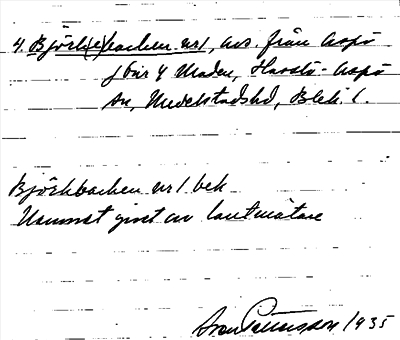 4. Björk(e)backen nr 1, avs. från Aspö
by 4 Maden, Hasslö-Aspö
sn, Medelstads hd, Blek. l.
Björkbacken nr 1 bek
Namnet givet av lantmätare
1935